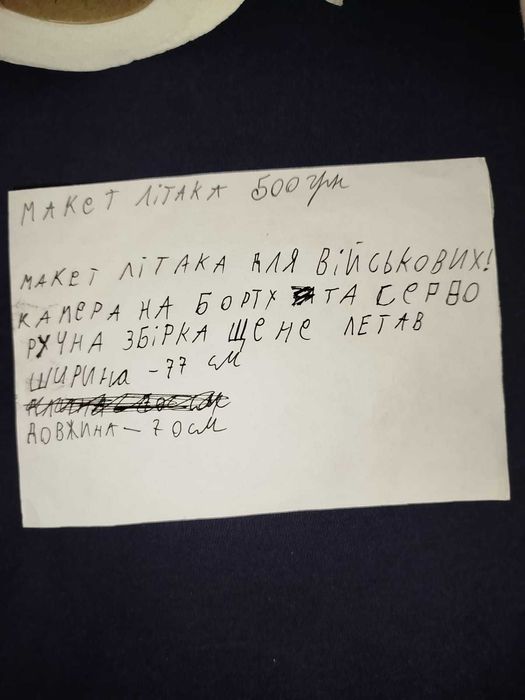 МАКЕТ ЛІТАКА 500 грн
МАКЕТ ЛІТАКА ДЛЯ ВІЙСЬКОВИХ!
КАМЕРА НА БОРТУ ТА СЕРВО
РУЧНА ЗБІРКА ЩЕ НЕ ЛЕТАВ
ШИРИНА - 77 см
ДОВЖИНА - 70 см